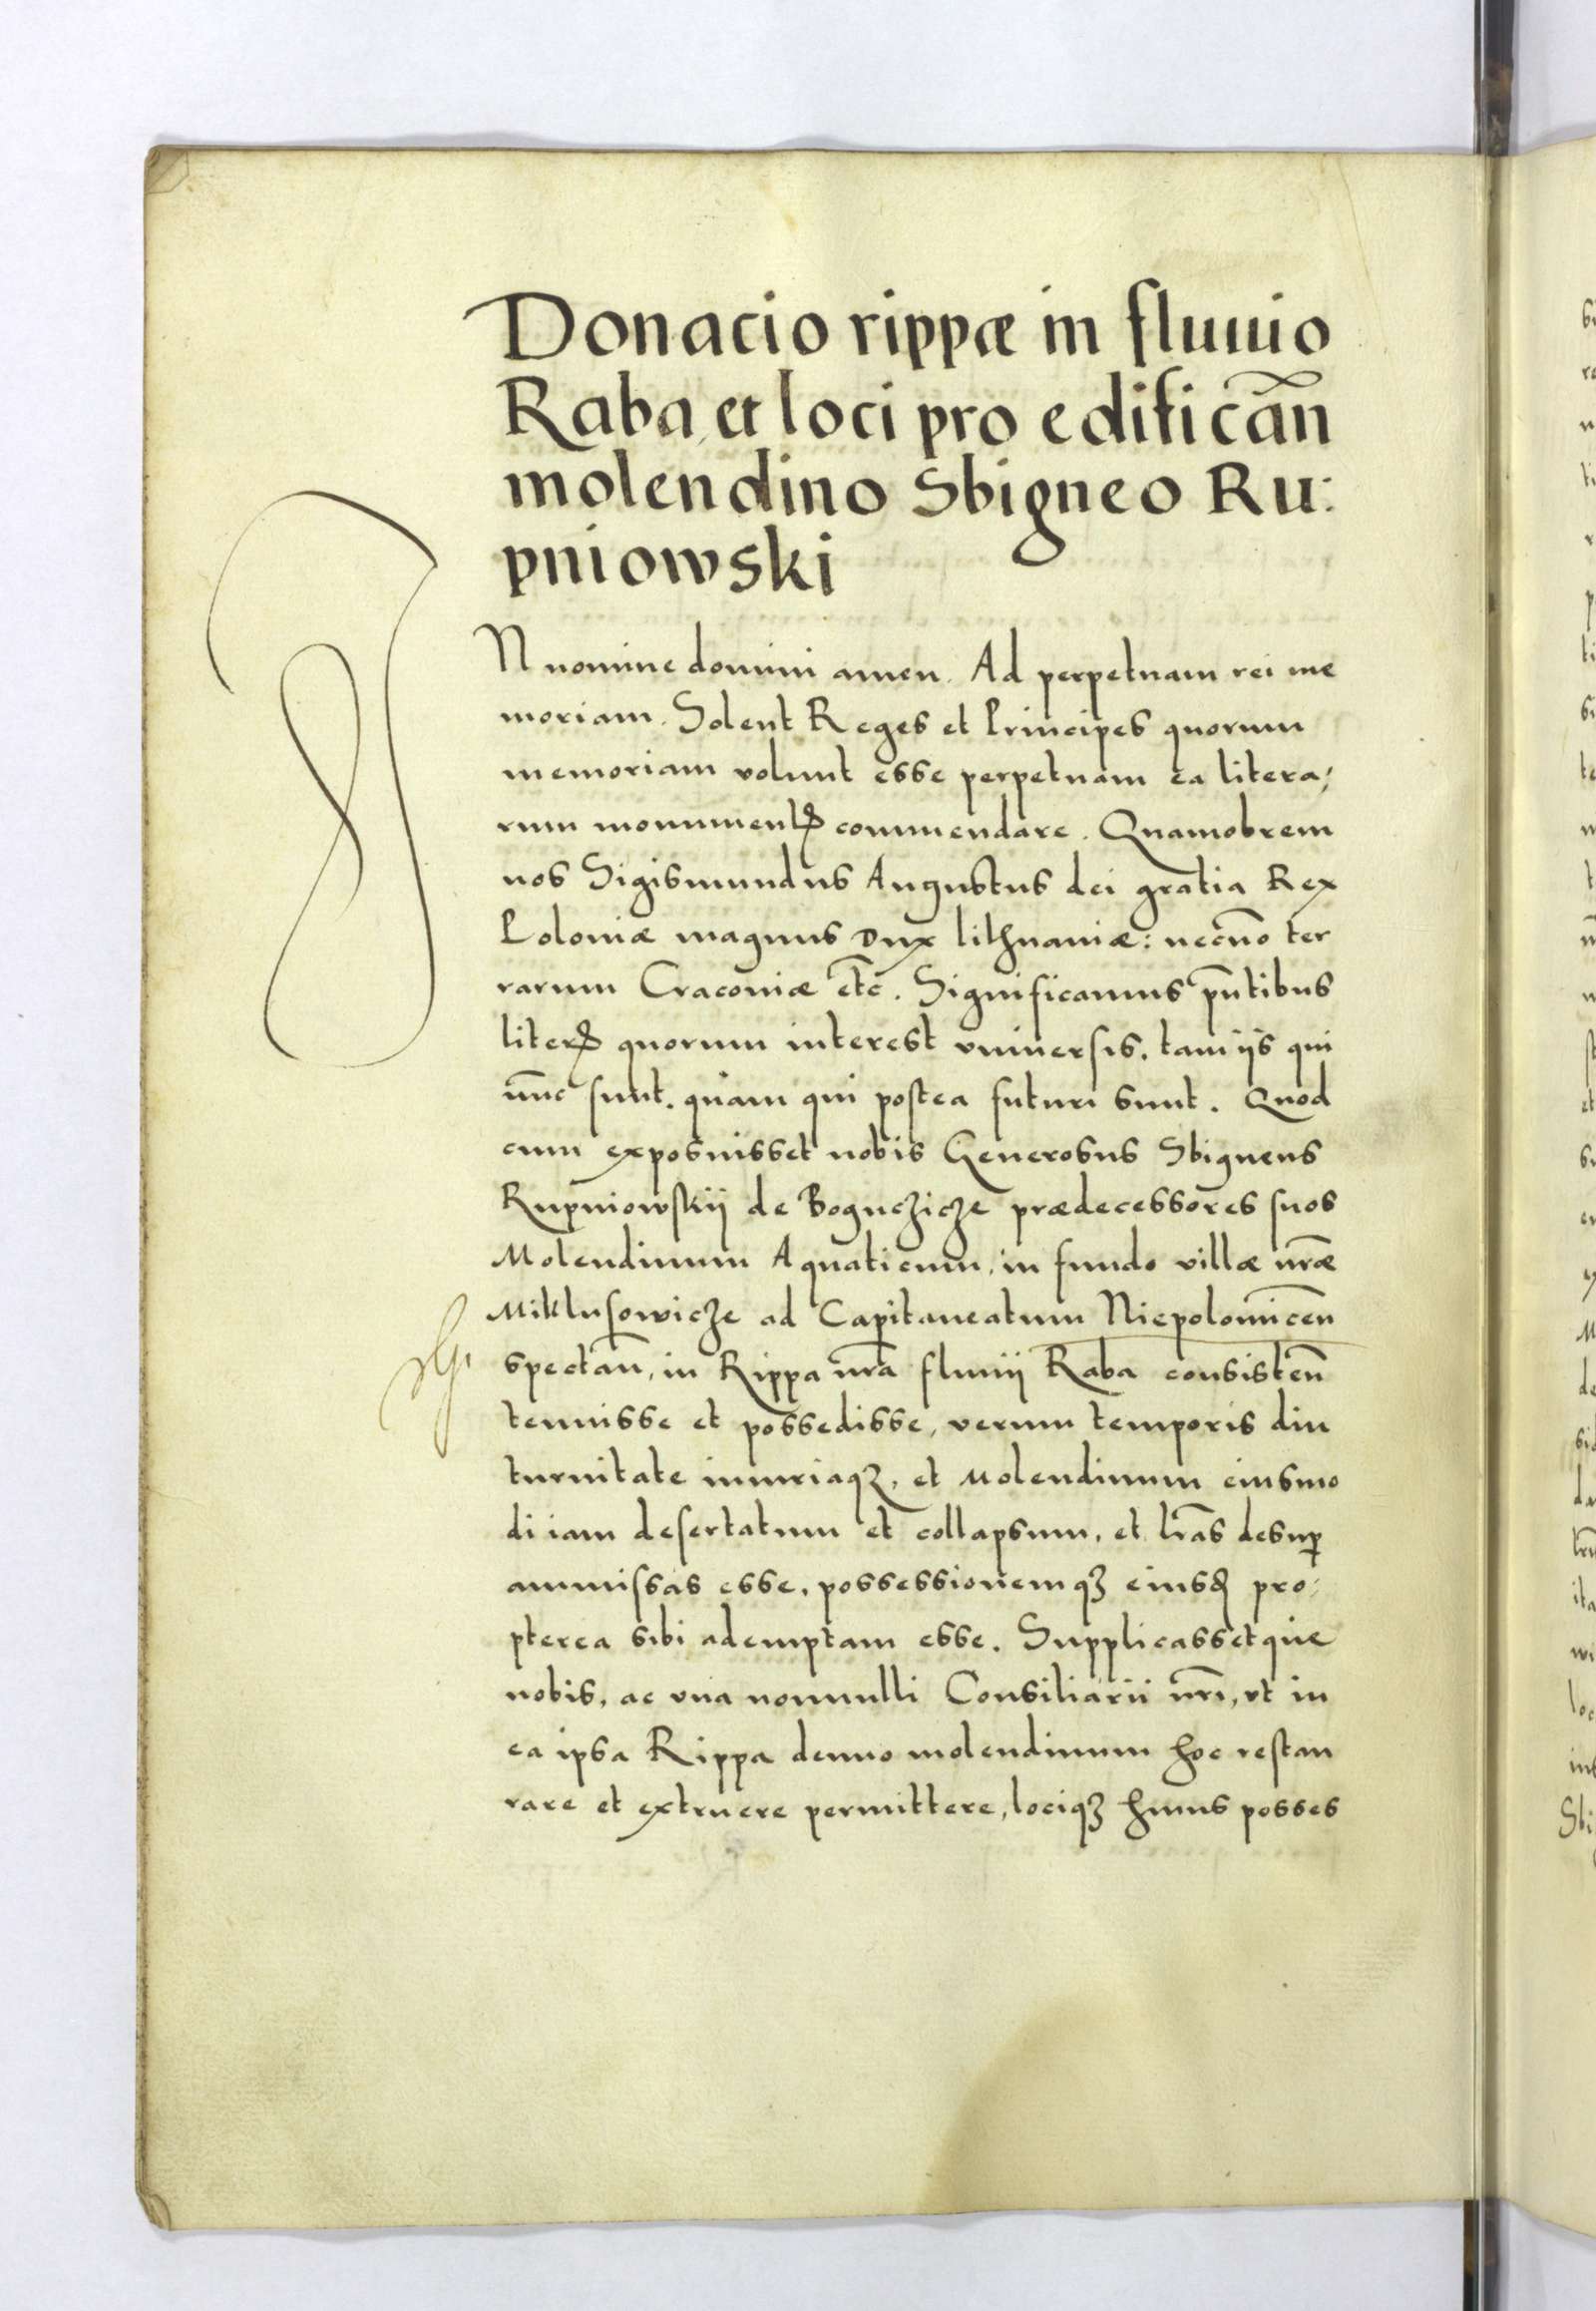 Donacio rippæ in fluuio
Raba, et loci pro edificañ
molendino Sbigneo Ru:
pniowski
IN nomine domini amen. Ad perpetuam rei me
moriam. Solent Reges et Principes quorum
memoriam volunt esse perpetuam ea litera;
rum monumentꝭ commendare. Quamobrem
nos Sigismundus Augustus dei gratia Rex
Poloniæ magnus Dux lithuaniæ: necno̅ ter
rarum Cracouiæ etc̅. Significamus pn̅tibus
literꝭ quorum interest vniuersis. tam iis qui
nu̅c sunt. quàm qui postea futuri sunt. Quod
cum exposuisset nobis Generosus Sbigneus
Rupniowskij de Boguczicze prædecessores suos
Molendinum Aquaticum, in fundo villæ nr̅æ
Miklusowicze ad Capitaneatum Niepolomicen̅
spectan̅, in Rippa nr̅a fluuij Raba consisten̅
tenuisse et possedisse, verum temporis diu
turnitate iniuriaqꝫ, et Molendinum eiusmo
di iam desertatum et collapsum, et lr̅as desuꝑ
ammissas esse, possessionemqꝫ eiusd̅ pro:
pterea sibi ademptam esse. Supplicassetque
nobis, ac vna nonnulli Consiliarii nr̅i, vt in
ea ipsa Rippa denuo molendinum hoc restau
rare et extruere permittere, lociqꝫ huius posses